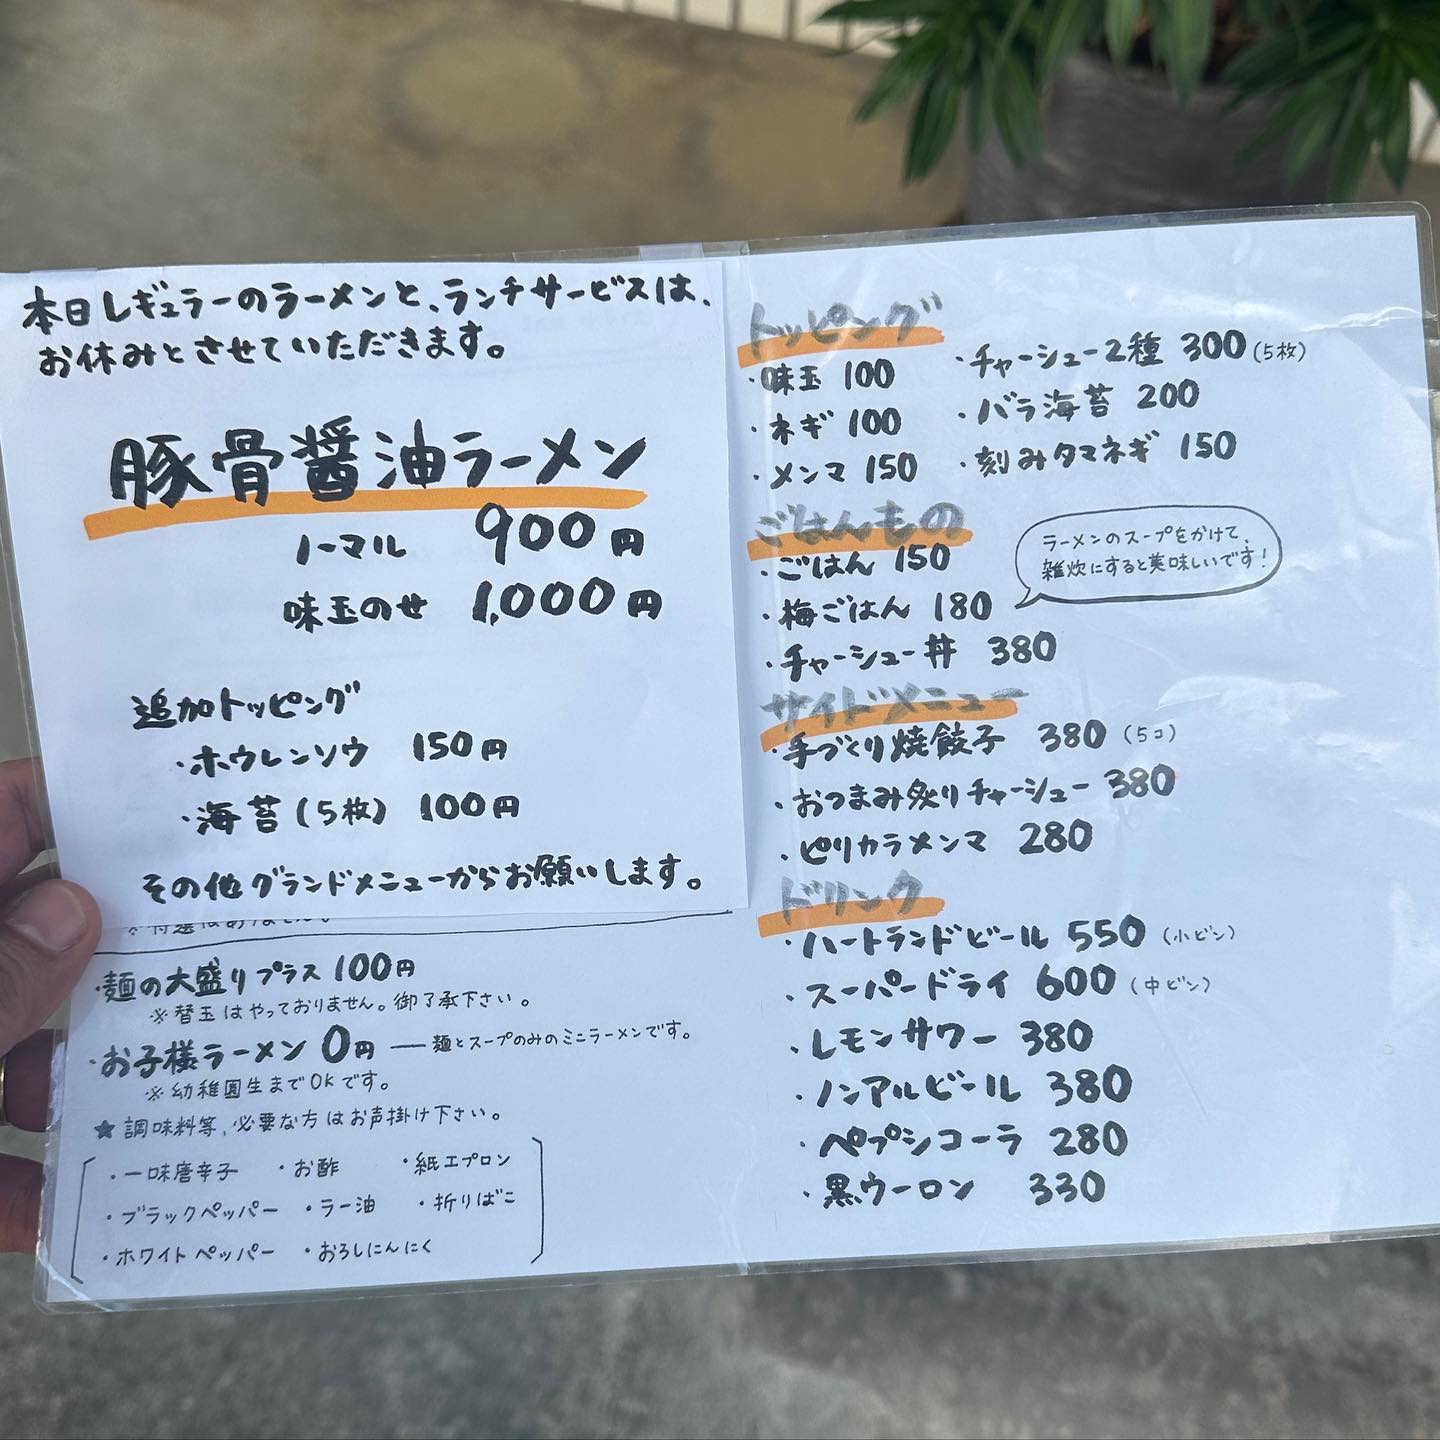 本日レギュラーのラーメンと、ランチサービスは、
お休みとさせていただきます。
豚骨醤油ラーメン
ノーマル 900円
味玉のせ 1,000円
追加トッピング
・ホウレンソウ 150円
・海苔(5枚) 100円
その他グランドメニューからお願いします。
・麺の大盛りプラス100円
※替玉はやっておりません。御了承下さい。
・お子様ラーメン 0円 ― 麺とスープのみのミニラーメンです。
※幼稚園生までOKです。
★調味料等、必要な方はお声掛け下さい。
・一味唐辛子 ・お酢 ・紙エプロン
・ブラックペッパー ・ラー油 ・折りばこ
・ホワイトペッパー ・おろしにんにく
トッピング
・味玉 100 ・チャーシュー2種 300(5枚)
・ネギ 100 ・バラ海苔 200
・メンマ 150 ・刻みタマネギ 150
ごはんもの
・ごはん 150
ラーメンのスープをかけて、
雑炊にすると美味しいです!
・梅ごはん 180
・チャーシュー丼 380
サイドメニュー
・手づくり焼餃子 380(5コ)
・おつまみ炙りチャーシュー 380
・ピリカラメンマ 280
ドリンク
・ハートランドビール 550(小ビン)
・スーパードライ 600(中ビン)
・レモンサワー 380
・ノンアルビール 380
・ペプシコーラ 280
・黒ウーロン 330